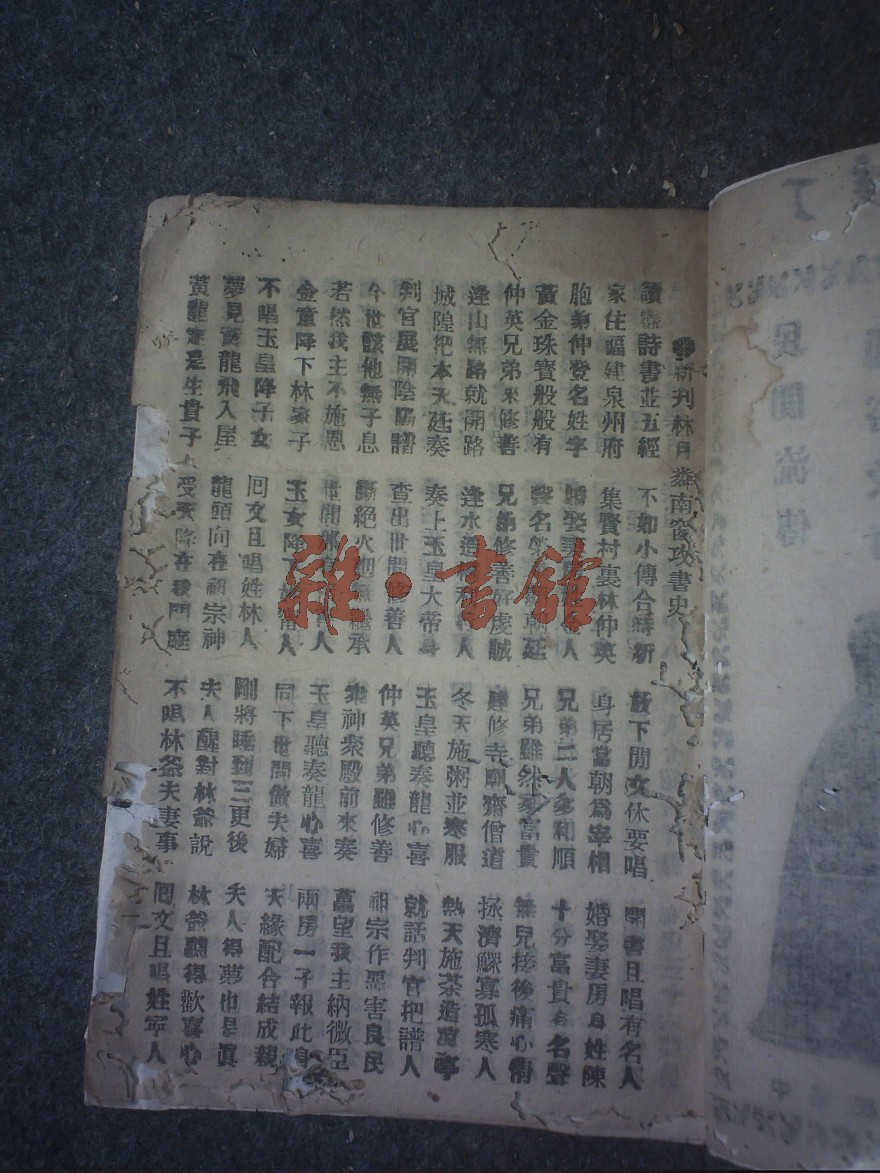 新刊林月南窗攻書史
讀盡詩書並五經 不如小傳合時新 放下閒文休要唱 開書且唱有名人
家住福建泉州府 集賢村裏林仲英 身居當朝為宰相 婚娶妻房身姓陳
胞弟仲登名姓字 婚娶妻人 兄弟二人多和順 十分富貴有名聲
黃金珠寶般般有 聲名朝廷 兄弟雖然多富貴 無兒接後痛心
仲英兄弟來修善 兄弟修善好虔誠 建修寺廟齋僧道 拯濟鰥寡孤寒人
逢山無路就開路 逢水造人 冬天施粥並寒服 熱天施茶造凉亭
城隍把本天廷奏 奏上玉皇大帝身 玉皇聽奏龍心喜 就話判官把譜人
判官展開陰陽譜 查出世間修善人 仲英兄弟雖修善 祖宗作惡害良民
今世該他無子息 斷絕火烟無繼承 衆神衆殿前來奏 萬望我主納微臣
若然我主不施恩 世間人 玉皇聽奏龍心喜 兩房一子報此身
金童降下林家子 玉女降下姓甯人 同下世間做夫婦 天緣配合結成親
不唱玉皇降子女 囘文且唱姓林人 剛將睡到三更後 夫人得夢也是眞
夢見黃龍飛入屋 龍頭向在祖宗神 夫人醒對林爺說 林爺聽得歡喜心
黃龍定是生貴子 受天降在我門庭 不唱林爺夫妻事 囘文且唱姓寧人
了
民間流傳
雜·書館